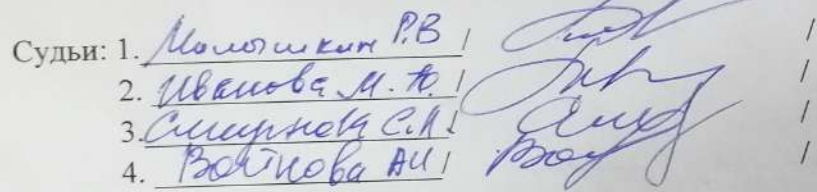 Судьи: 1. Малышкин Р.В / /
2. Иванова М.Ю. / /
3. Смирнова С.А. / /
4. Войнова АИ / /